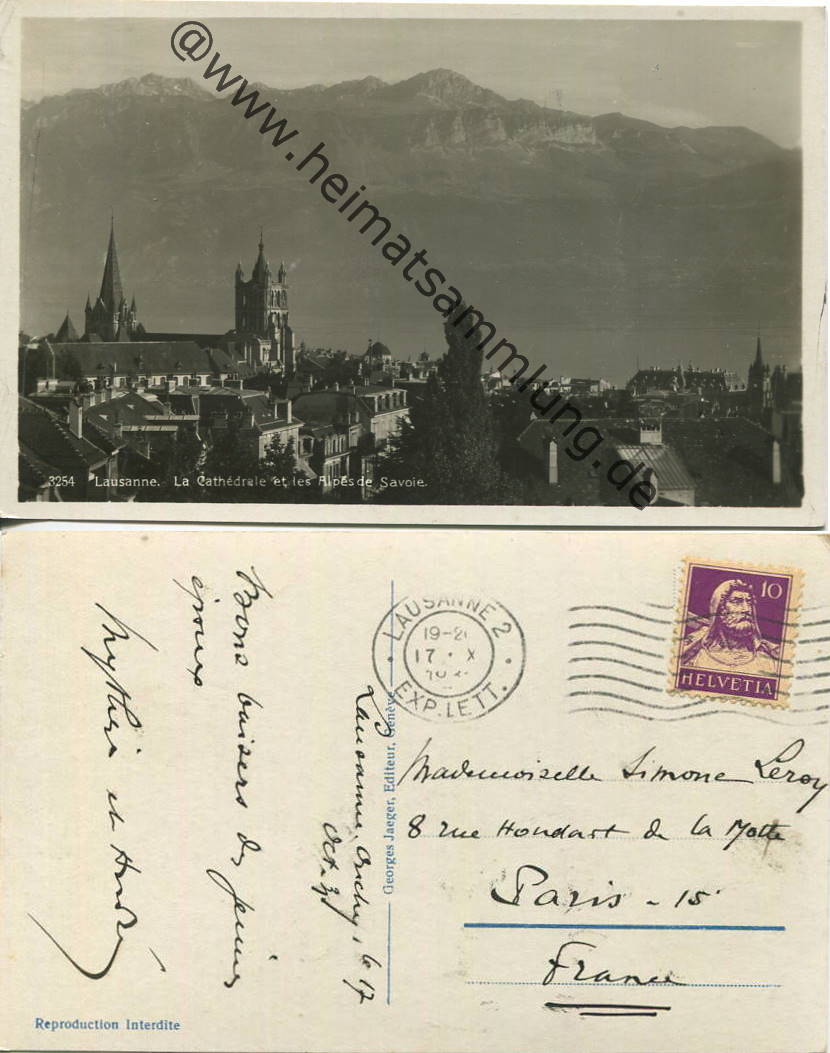 @www.heimatsammlung.de
3254 Lausanne. La Cathédrale et les Alpes de Savoie.
LAUSANNE 2
17 . X
EXP. LETT.
10
HELVETIA
Lausanne Ouchy, le 17
Oct.
Bons baisers des jeunes
époux
et André
Georges Jaeger, Editeur, Genève
Mademoiselle Simone Leroy
8 rue Houdart de la Motte
Paris - 15
France
Reproduction Interdite